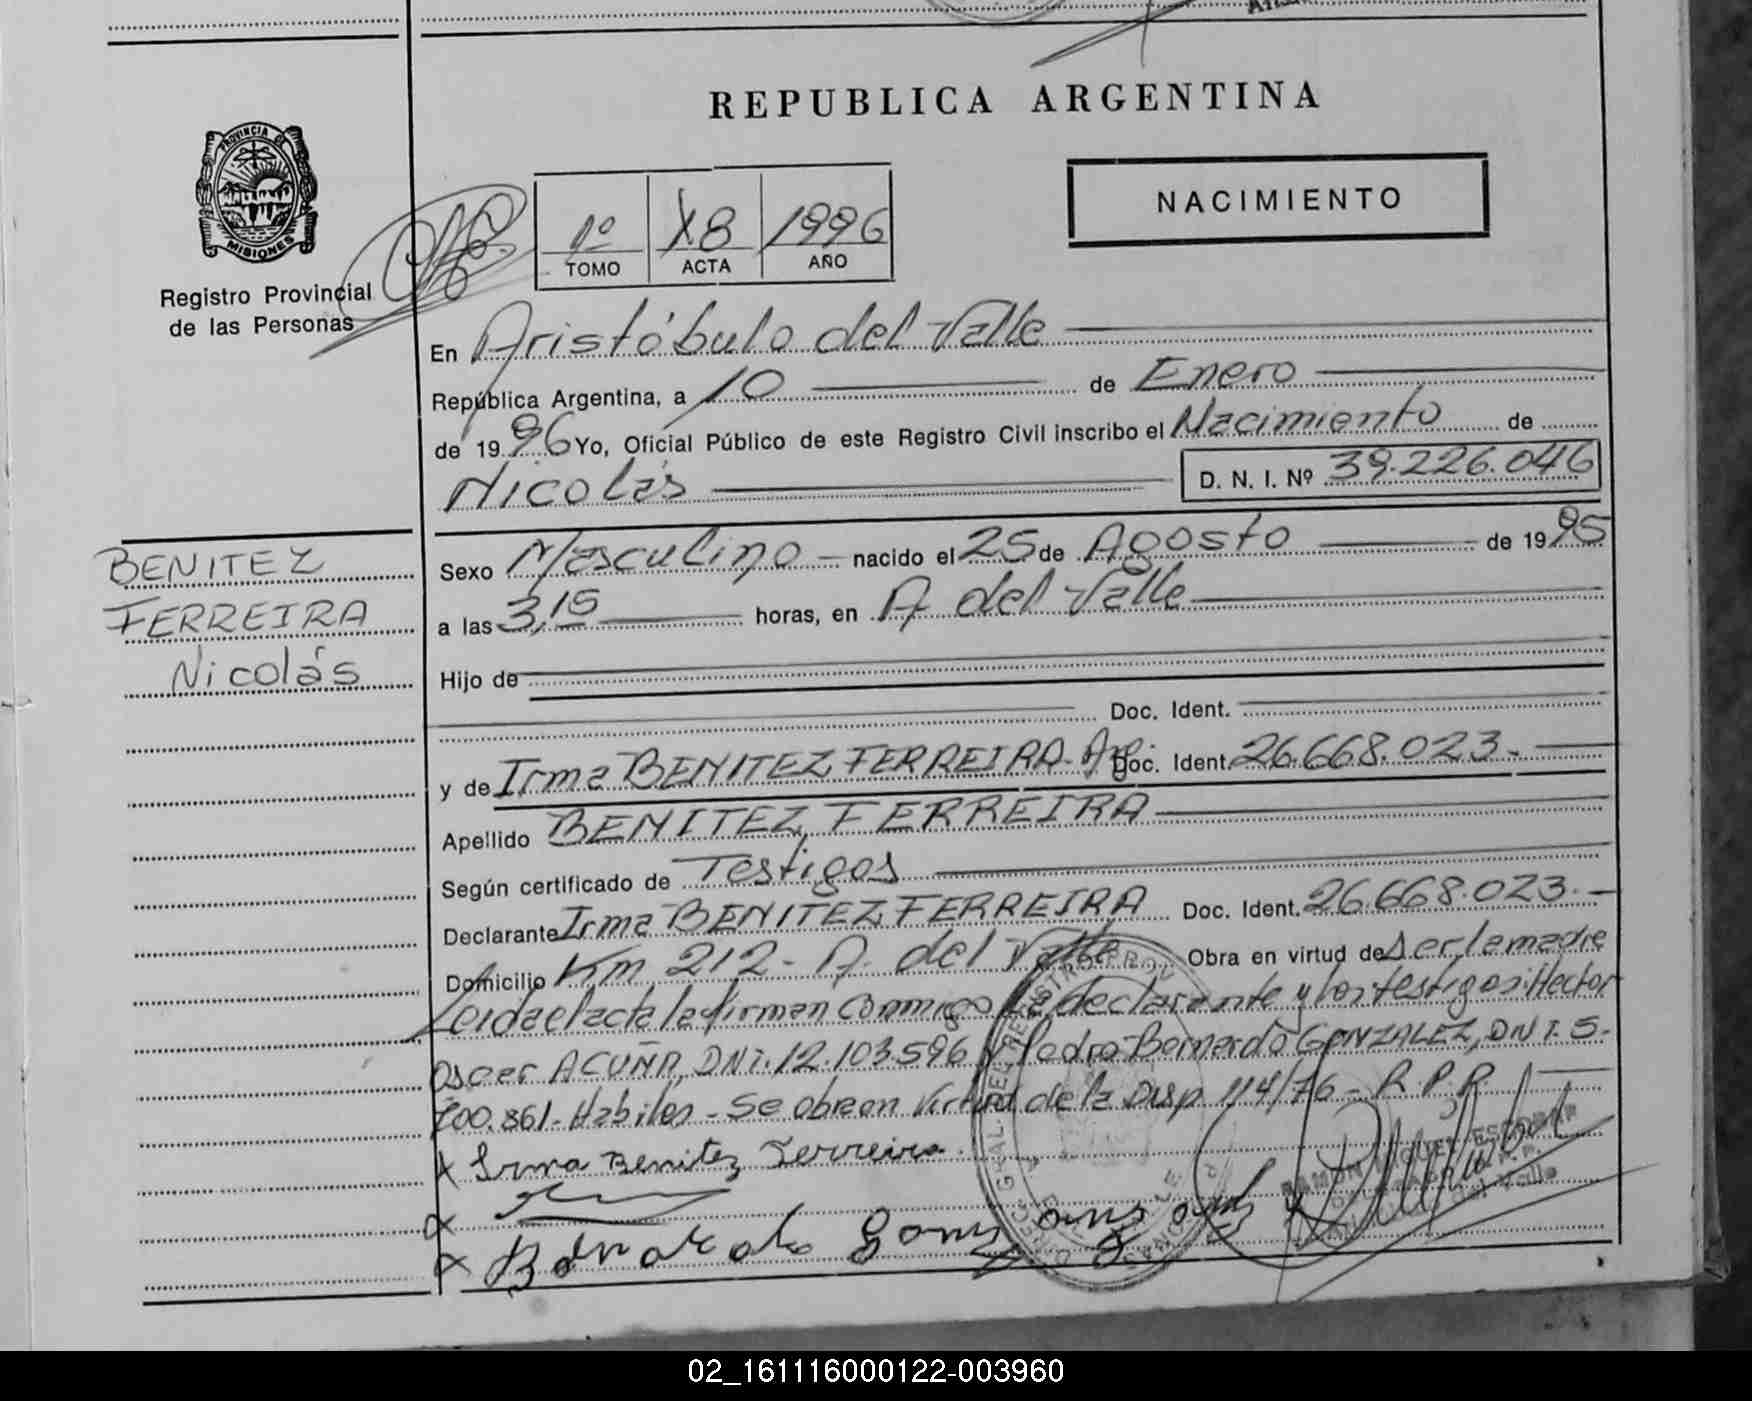 REPUBLICA ARGENTINA
PROVINCIA DE
MISIONES
Registro Provincial
de las Personas
1º 18 1996
TOMO ACTA AÑO
NACIMIENTO
En Aristóbulo del Valle
República Argentina, a 10 de Enero
de 1996 Yo, Oficial Público de este Registro Civil inscribo el Nacimiento de
Nicolás D. N. I. Nº 39.226.046
BENITEZ
FERREIRA
Nicolás
Sexo Masculino nacido el 25 de Agosto de 1995
a las 3,15 horas, en A. del Valle
Hijo de
Doc. Ident.
y de Irma BENITEZ FERREIRA- Arg. Doc. Ident. 26.668.023.-
Apellido BENITEZ FERREIRA
Según certificado de Testigos
Declarante Irma BENITEZ FERREIRA Doc. Ident. 26.668.023.-
Domicilio Km 212 - A. del Valle Obra en virtud de ser la madre
Leida el acta la firman conmigo la declarante y los testigos: Hector
Oscar ACUÑA, DNI. 12.103.596 y Pedro Bernardo GONZALEZ, DNI. 5.
200.861- Habiles - Se obra en Virtud de la Disp 114/76 - R.P.P.
x Irma Benitez Ferreira
x
x
RAMON MIGUEL
del Valle
02_161116000122-003960